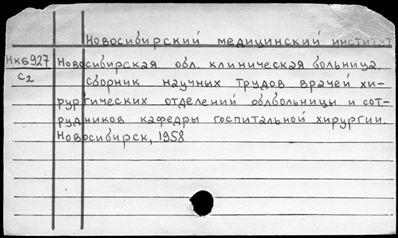 Новосибирский медицинский институт
Нк6927 Новосибирская обл. клиническая больница.
С2 Сборник научных трудов врачей хи-
рургических отделений облбольницы и сот-
рудников кафедры госпитальной хирургии.
Новосибирск, 1958